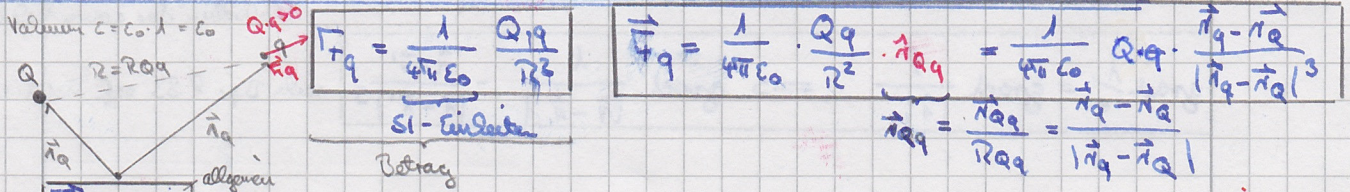 Vakuum ε = ε₀ · 1 = ε₀
Q·q > 0
q
Q
R = R_Qq
r⃗_Q
r⃗_q
allgemein
F_q = 1/(4πε₀) Q·q/R²
SI-Einheiten
Betrag
F⃗_q = 1/(4πε₀) · Qq/R² · r⃗_Qq = 1/(4πε₀) Q·q · (r⃗_q - r⃗_Q)/|r⃗_q - r⃗_Q|³
r⃗_Qq = r⃗_Qq/R_Qq = (r⃗_q - r⃗_Q)/|r⃗_q - r⃗_Q|